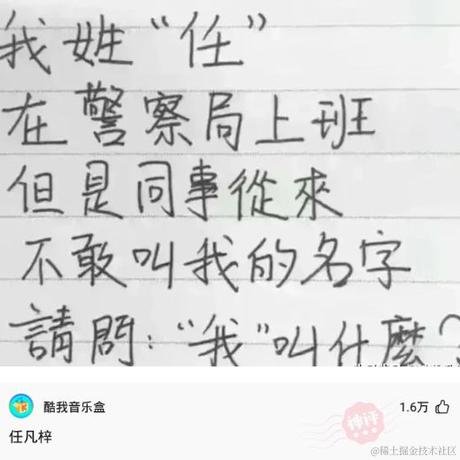 我姓“任”
在警察局上班
但是同事從來
不敢叫我的名字
請問：“我”叫什麼？
酷我音乐盒
1.6万
神评
任凡梓
@稀土掘金技术社区